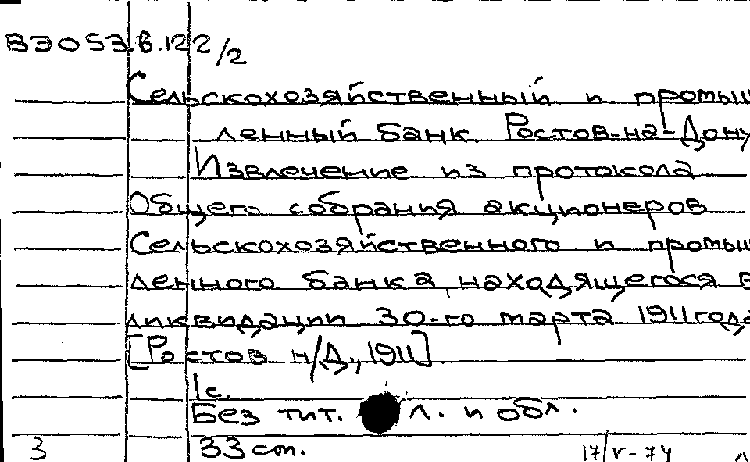 ВЭ053.В.122/2
Сельскохозяйственный и промыш
ленный банк. Ростов-на-Дону
Извлечение из протокола
Общего собрания акционеров
Сельскохозяйственного и промыш
ленного банка, находящегося в
ликвидации 30-го марта 1911 года
[Ростов н/Д., 1911].
1с.
Без тит. л. и обл.
3 33 cm. 17/V-74